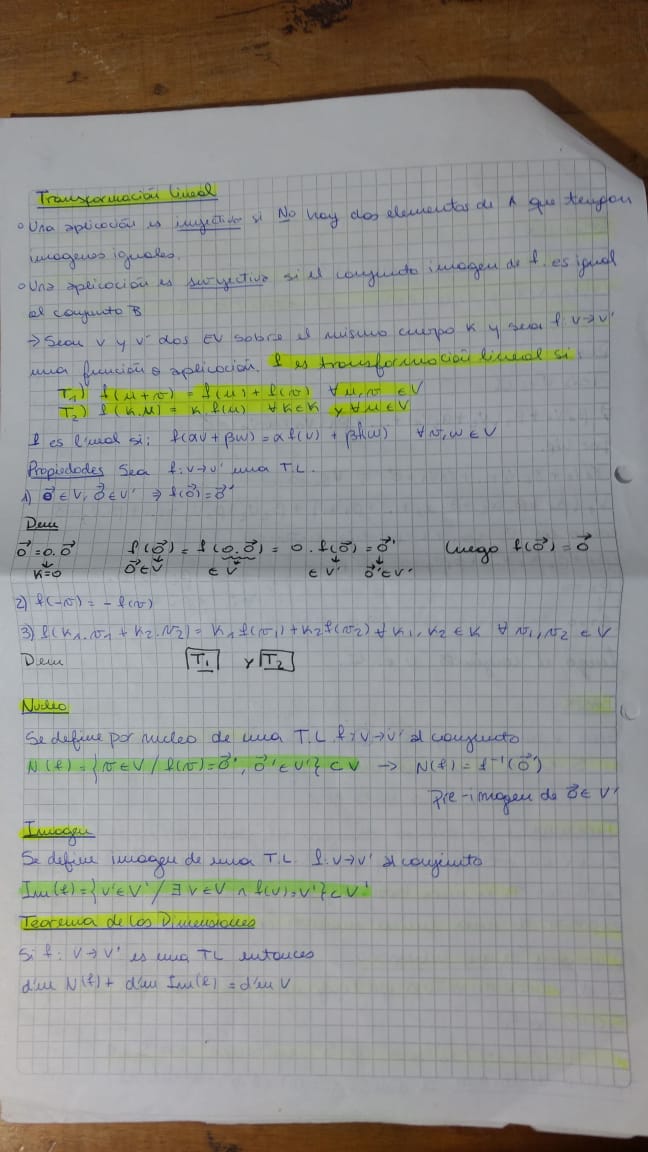 Transformación Lineal
° Una aplicación es inyectiva si No hay dos elementos de A que tengan
imagenes iguales.
° Una aplicación es suryectiva si el conjunto imagen de f. es igual
al conjunto B
→ Sean V y V' dos EV sobre el mismo cuerpo K y sea f: V→V'
una función o aplicación. f es transformación lineal si:
T₁) f(μ+v) = f(μ) + f(v) ∀ μ, v ∈ V
T₂) f(K.μ) = K f(μ) ∀ K∈K y ∀ μ ∈ V
f es lineal si: f(αv + βw) = α f(v) + βf(w) ∀ v, w ∈ V
Propiedades Sea f: V→V' una T.L.
1) 0⃗ ∈ V, 0⃗ ∈ V' ⇒ f(0⃗) = 0⃗'
Dem
0⃗ = 0. 0⃗ f(0⃗) = f(0. 0⃗) = 0. f(0⃗) = 0⃗' Luego f(0⃗) = 0⃗
K=0 0⃗ ∈ V ∈ V ∈ V' 0⃗' ∈ V'
2) f(-v) = - f(v)
3) f(K₁.v₁ + K₂.v₂) = K₁ f(v₁) + K₂ f(v₂) ∀ K₁, K₂ ∈ K ∀ v₁, v₂ ∈ V
Dem T₁ y T₂
Nucleo
Se define por nucleo de una T.L f: V→V' al conjunto
N(f) = {v ∈ V / f(v) = 0⃗', 0⃗' ∈ V'} ⊂ V → N(f) = f⁻¹(0⃗')
Pre-imagen de 0⃗ ∈ V'
Imagen
Se define imagen de una T.L. f: V→V' al conjunto
Im(f) = {v' ∈ V' / ∃ v ∈ V ∧ f(v) = v'} ⊂ V'
Teorema de Los Dimensiones
Si f: V→V' es una TL entonces
dim N(f) + dim Im(f) = dim V